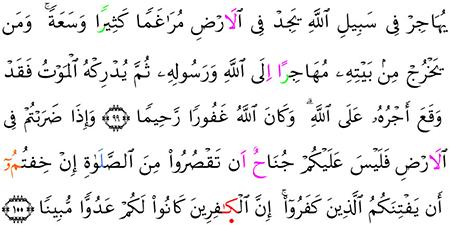 يُهَاجِرْ فِى سَبِيلِ اللَّهِ يَجِدْ فِى الَارْضِ مُرَاغَمًا كَثِيرًا وَسَعَةً ۚ وَمَن
يَخْرُجْ مِنۢ بَيْتِهِۦ مُهَاجِرًا اِلَى اللَّهِ وَرَسُولِهِۦ ثُمَّ يُدْرِكْهُ الْمَوْتُ فَقَدْ
وَقَعَ أَجْرُهُۥ عَلَى اللَّهِ ۗ وَكَانَ اللَّهُ غَفُورًا رَّحِيمًا ۝٩٩ وَإِذَا ضَرَبْتُمْ فِى
الَارْضِ فَلَيْسَ عَلَيْكُمْ جُنَاحٌ اَن تَقْصُرُوا۟ مِنَ الصَّلَوٰةِ إِنْ خِفْتُمُۥٓ
أَن يَفْتِنَكُمُ الَّذِينَ كَفَرُوٓا۟ ۚ إِنَّ الْكَـٰفِرِينَ كَانُوا۟ لَكُمْ عَدُوًّا مُّبِينًا ۝١٠٠